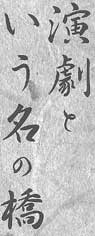 演劇と
いう名の橋